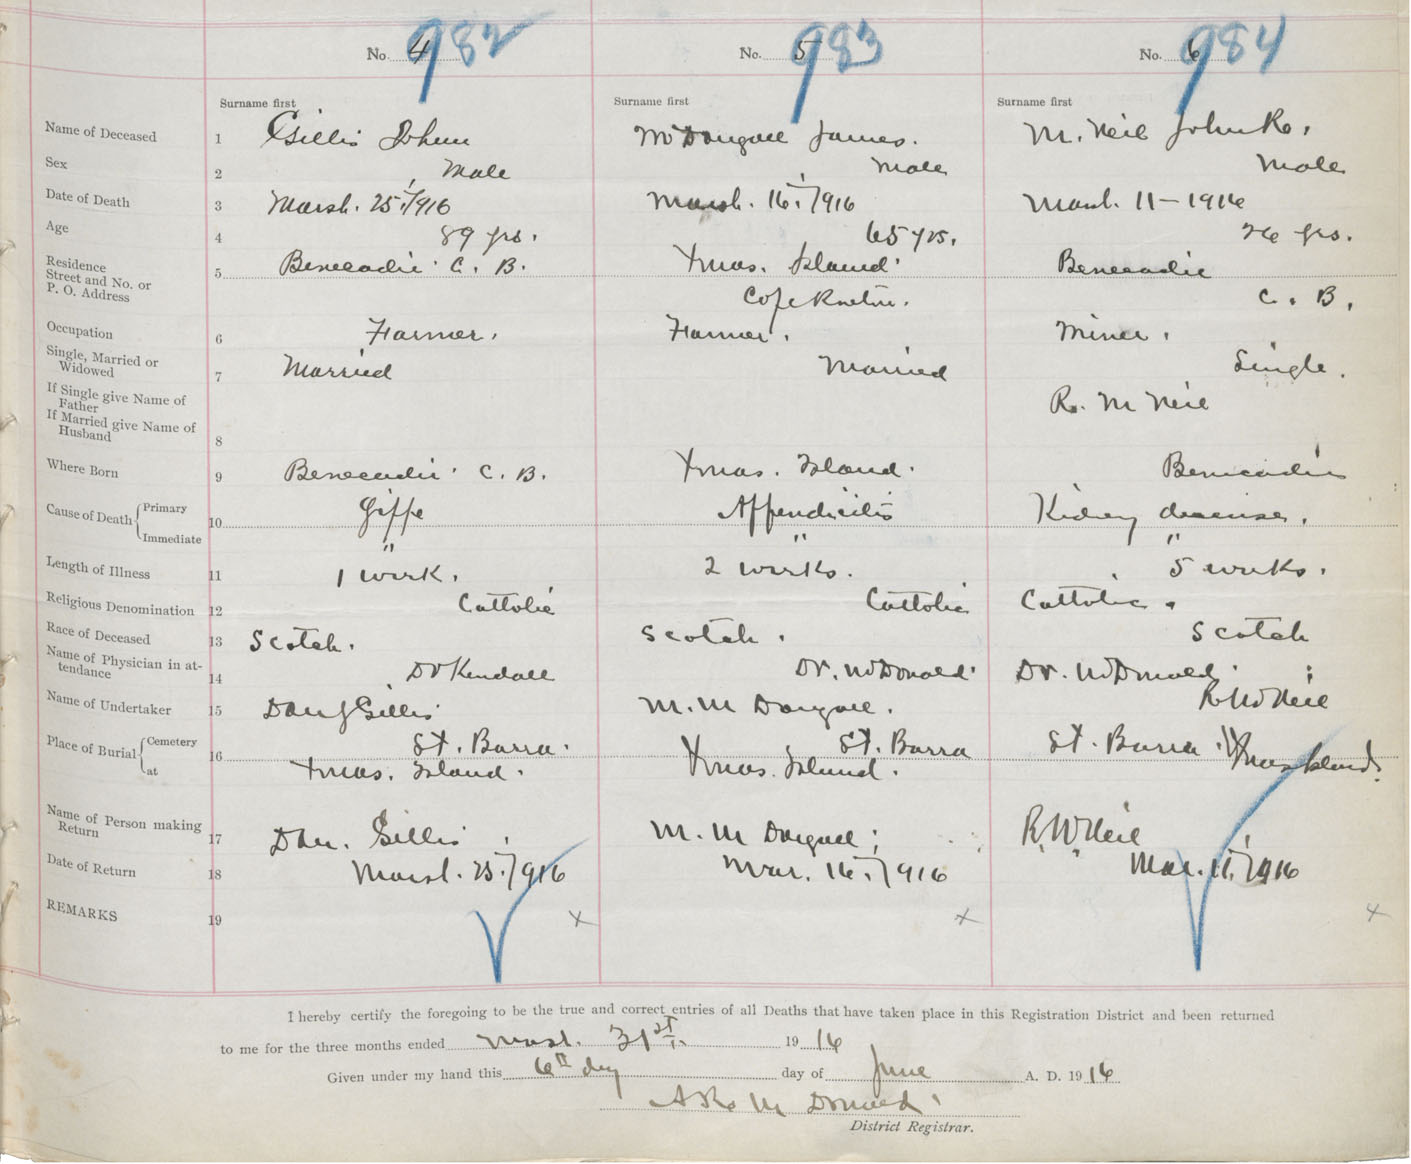 No. 4 982 No. 5 983 No. 6 984
Surname first Surname first Surname first
Name of Deceased 1 Gillis John McDougall James. McNeil John R.
Sex 2 Male Male Male
Date of Death 3 March. 25./1916 March. 16./1916 March. 11-1916
Age 4 89 yrs. 65 yrs. 26 yrs.
Residence
Street and No. or 5 Benecadie C. B. Xmas. Island Benecadie
P. O. Address Cape Breton. C. B.
Occupation 6 Farmer. Farmer. Miner.
Single, Married or
Widowed 7 Married Married Single.
If Single give Name of
Father R. McNeil
If Married give Name of
Husband 8
Where Born 9 Benecadie C. B. Xmas. Island. Benecadie
Cause of Death Primary 10 Grippe Appendicitis Kidney disease.
Immediate " " "
Length of Illness 11 1 week. 2 weeks. 5 weeks.
Religious Denomination 12 Cattolic Cattolic Cattolic.
Race of Deceased 13 Scotch. Scotch. Scotch
Name of Physician in at-
tendance 14 Dr Kendall Dr. McDonald Dr. McDonald
Name of Undertaker 15 Dan J Gillis M. McDougall. R McNeil
Place of Burial Cemetery 16 St. Barra. St. Barra St. Barra.
at Xmas. Island. Xmas. Island. Xmas Island.
Name of Person making
Return 17 Dan. Gillis M. McDougall R. McNeil
Date of Return 18 March. 25./1916 Mar. 16./1916 Mar. 11./1916
REMARKS 19 x x x
I hereby certify the foregoing to be the true and correct entries of all Deaths that have taken place in this Registration District and been returned
to me for the three months ended March. 31st. 19 16
Given under my hand this 6th day day of June A. D. 19 16
McDonald
District Registrar.